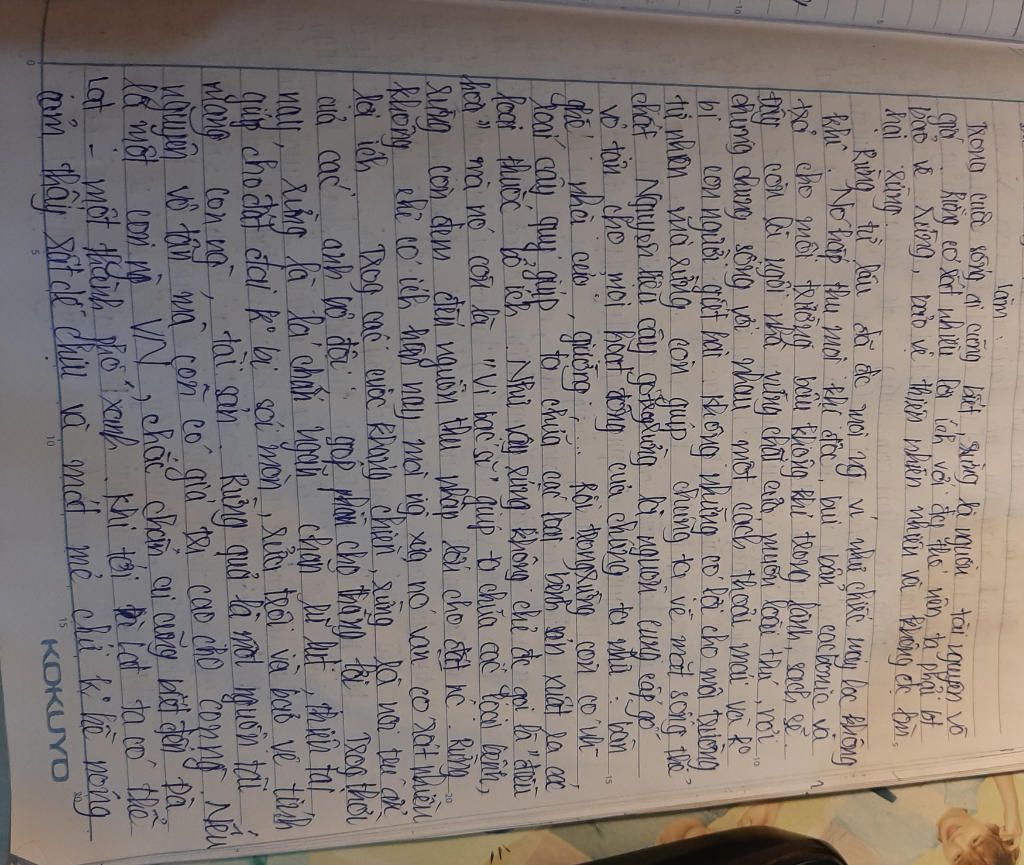 làn.
Trong cuộc sống ai cũng biết rừng là nguồn tài nguyên vô
giá. Rừng có rất nhiều lợi ích với đ/s thế nên ta phải bt
bảo vệ rừng, bảo vệ thiên nhiên nhiều và không đc tàn
hại rừng.
Rừng từ lâu đã đc mọi ng ví như chiếc máy lọc không
khí. Nó hấp thu mọi khí độc, bụi bẩn, cacbonic và
trả cho môi trường bầu không khí trong lành, sạch sẽ.
Đây còn là ngôi nhà vững chắc của muôn loài thú, nơi
chúng chung sống với nhau một cách thoải mái và ko
bị con người giết hại. Không những có lợi cho môi trường
tự nhiên mà rừng còn giúp chúng ta về mặt sống thể
chất. Nguyên liệu cây gỗ rừng là nguồn cung cấp gỗ
vô tận cho mọi hoạt động của chúng ta như: bàn
ghế, nhà cửa, giường,... Bên trong rừng còn có nh-
loài cây quý giúp ta chữa các loại bệnh, sản xuất ra các
loại thuốc bổ ích. Như vậy rừng không chỉ đc gọi là "điều
hoà" mà nó còn là "vị bác sĩ" giúp ta chữa các loại bệnh,
rừng còn đem đến nguồn thu nhập lời cho đất nc. Rừng
không chỉ có ích hiện nay mà ngày xưa nó vẫn có rất nhiều
lợi ích. Trog các cuộc kháng chiến, rừng là nơi trú ẩn
của các anh bộ đội góp phần cho thắng lợi. Trog thời
nay, rừng là lá chắn ngăn chặn lũ lụt, thiên tai
giúp cho đất đai ko bị sói mòn, sửa trôi và bảo vệ tính
mạng con ng, tài sản. Rừng quả là một nguồn tài
nguyên vô tận mà còn có giá trị cao cho con ng. Nếu
là một con ng VN, chắc chắn ai cũng biết đến Đà
Lạt - một thành phố xanh. Khi tới Đà Lạt ta có thể
cảm thấy rất dễ chịu và mát mẻ chứ ko hề nóng
KOKUYO